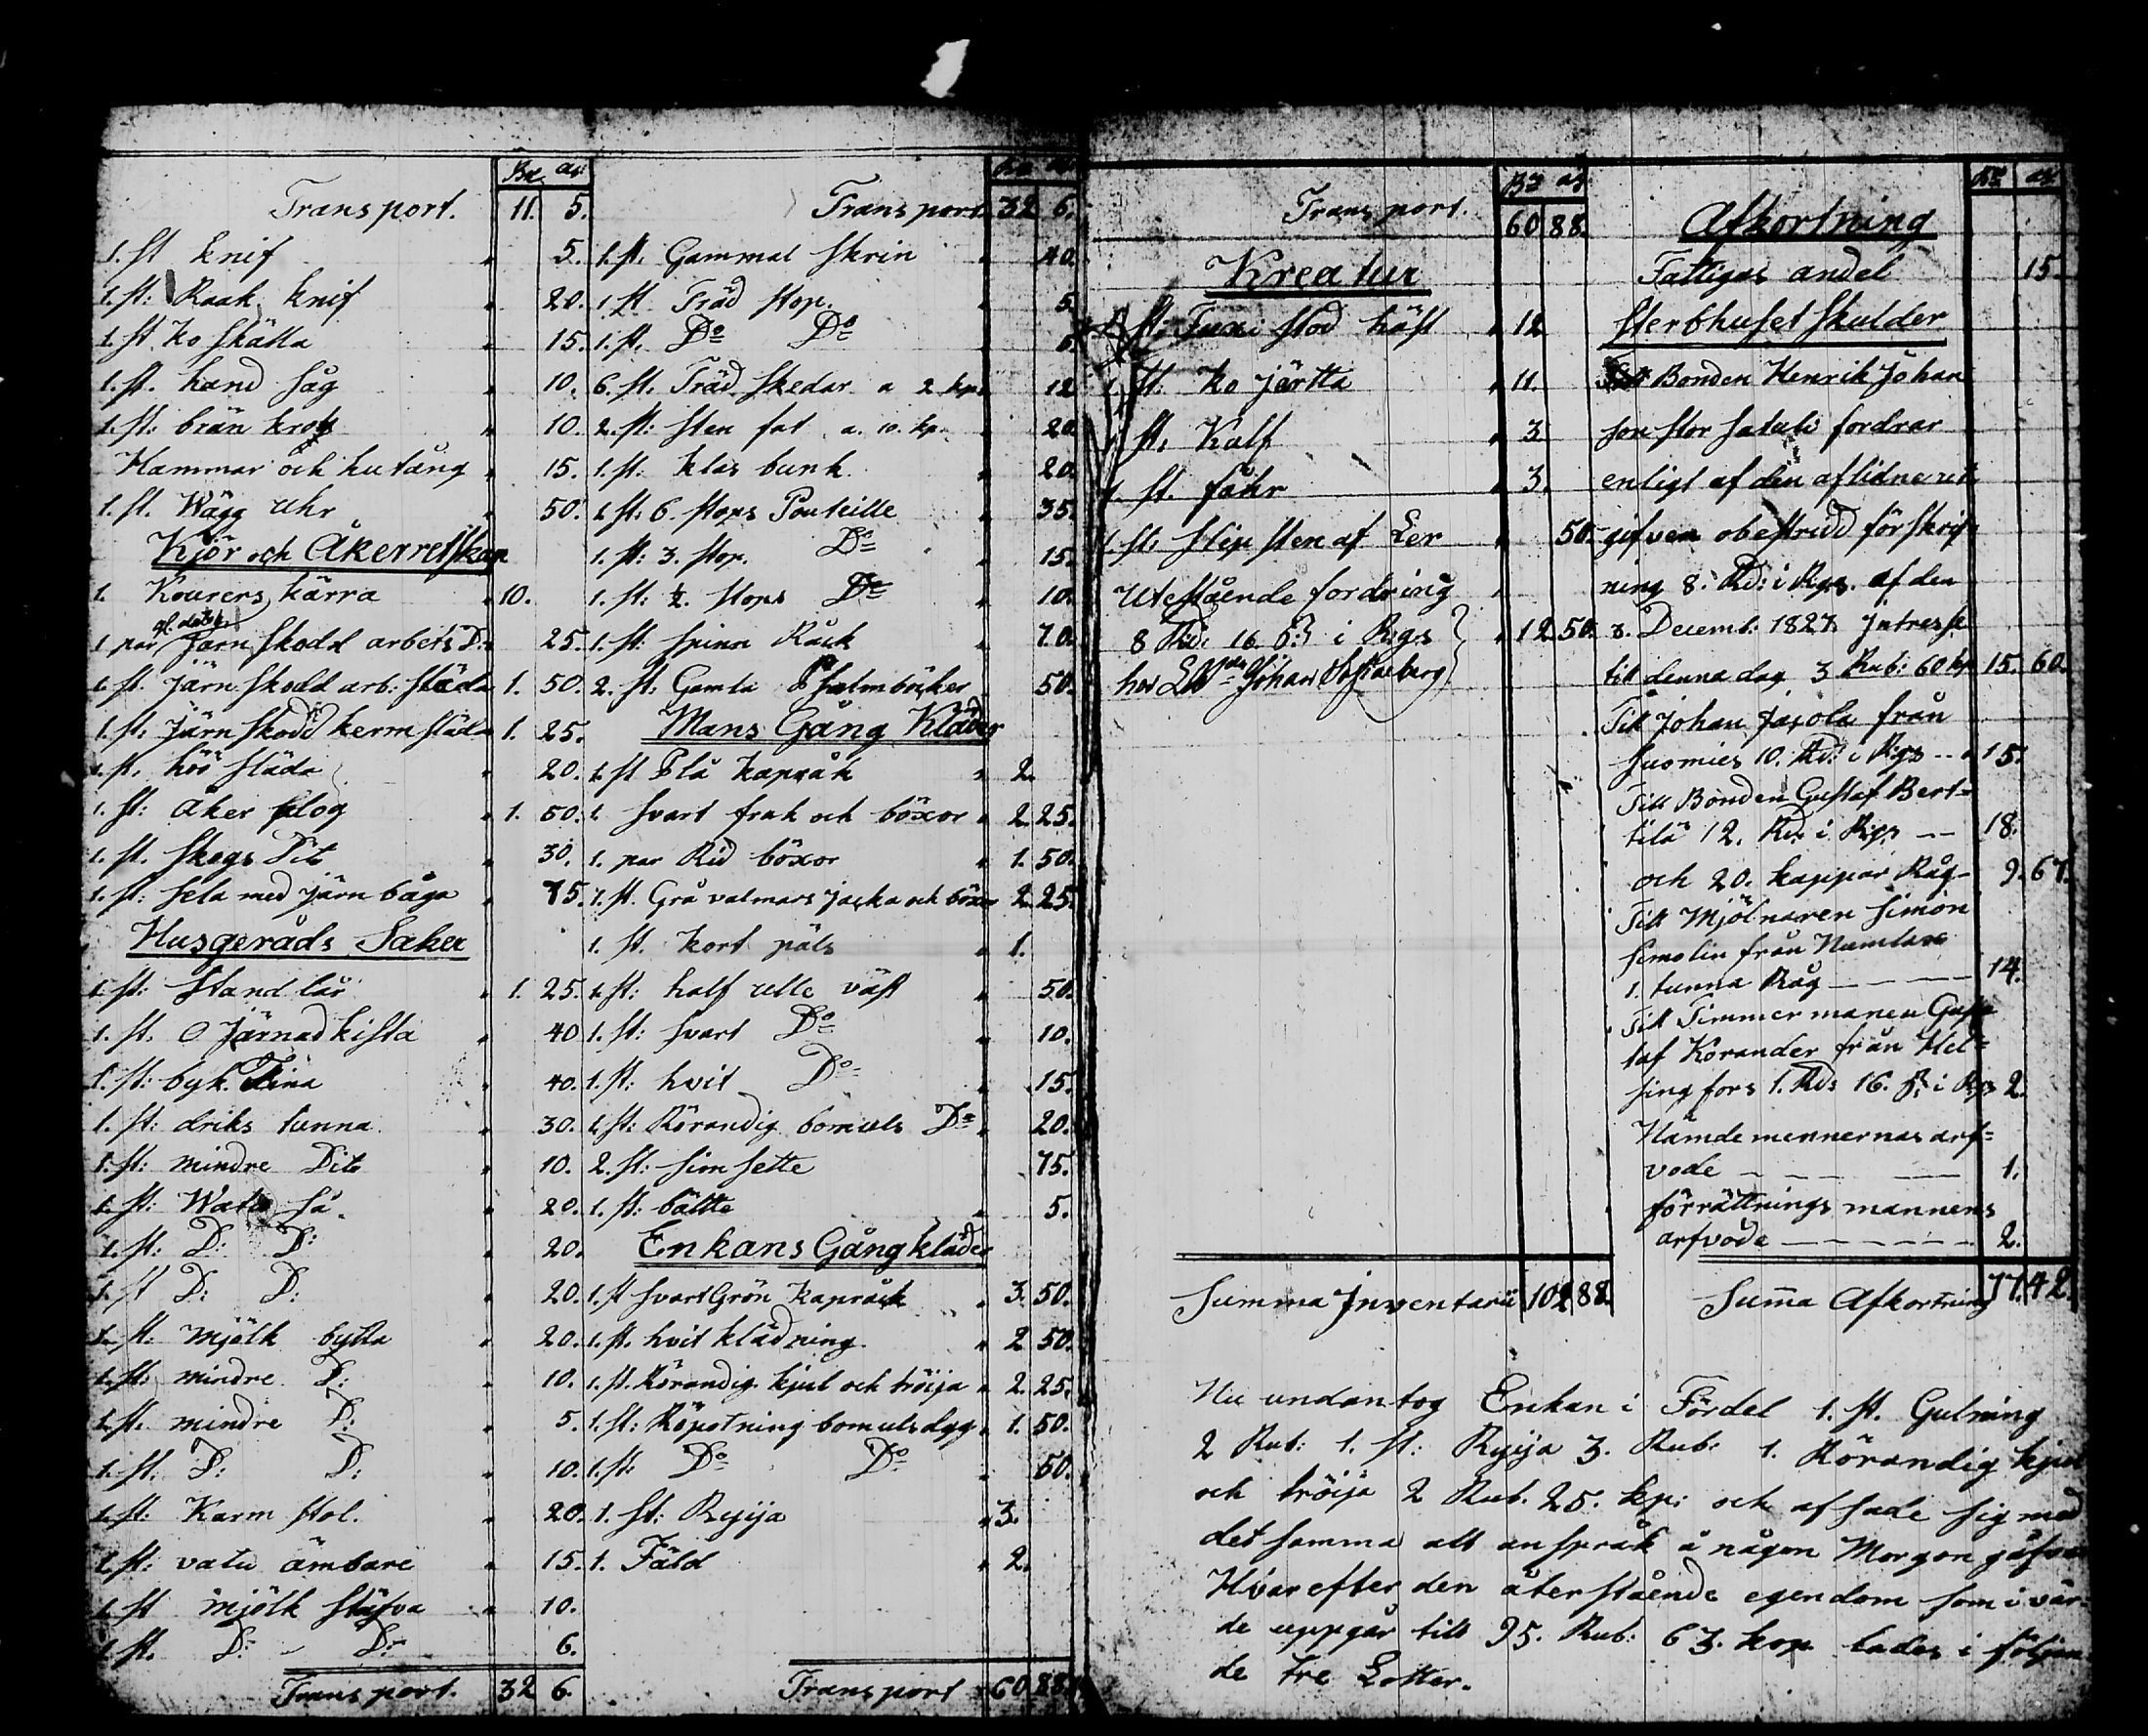 Transport. 11. 5.
1. st knif " 5.
1. st: Raak knif " 20.
1. st. ko skälla " 15.
1. st. hand såg " 10.
1. st: brän krok " 10.
Hammar och hutång " 15.
1. st. Wägg uhr " 50.
Kjör och Åkerretskap
1. Kourers kärra " 10.
1 par Järn skodd arbets D: " 25.
1. st. Järn skodd arb: släda 1. 50.
1. st. Järn skodd kerm släda 1. 25.
1. st. höö släda " 20.
1. st: åker plog " 1. 50.
1. st. skogs Dito " 30.
1. st: sela med järn båga " 75.
Husgeråds Saker
1. st: Stand lår " 1. 25.
1. st. O Järnad kista " 40
1. st: byk Tina " 40.
1. st: driks tunna " 30.
1. st: mindre Dito " 10.
1. st: Watu så. " 20.
1. st: D: D: " 20.
1. st D: D: " 20.
1. st. mjölk bytta " 20.
1. st: mindre D: " 10.
1. st. mindre D: " 5.
1. st: D: D: " 10.
1. st: Karm stol. " 20.
1. st: vatu ämbare " 15.
1. st mjölk stäfva " 10.
1. st. D: D: 6.
Transport. 32 6.
Transport 32 6.
1. st. Gammal skrin " 40.
1. st Träd stop. " 5.
1. st. Do Do
6. st. Träd skedar a 2 kp. 12
2. st: sten fat a. 10. kp. " 20
1. st: klas bunk " 20.
1. st: 6. stops Pouteille " 35.
1. st: 3. stop. Do " 15.
1. st: ½. stops Do " 10.
1. st: spinn Råck " 70.
2. st: Gamla Psalmböcker 50.
Mans Gång Kläder
1. st Blå kapråk " 2.
1. svart frak och böxor " 2. 25.
1. par Rid böxor " 1. 50.
1. st. Grå valmars jacka och böxor 2. 25.
1. st. kort päls " 1.
1. st: half ulle väst " 50.
1. st: svart Do " 10.
1. st: hvit Do " 15.
1. st: Rörandig bomuls Do " 20.
2. st: sim sette 75.
1. st: bältte " 5.
Enkans Gångkläder
1. st svart Grön kapråck " 3. 50.
1. st. hvit klädning " 2 50.
1. st. Rörandig kjul och tröija " 2. 25.
1. st: bomuls 1. 50.
1. st: Do Do " 50.
1. st: Ryija " 3.
1. Fäld " 2.
Transport 60 88.
Transport. 60 88.
Kreatur
st: stod häst " 12
1. st: ko Järtta " 11.
1 st. Kalf " 3
1. st. fåhr " 3.
1. st. Slip sten af Ler " 50.
Utestående fordring
8 Rd: 16. s: i Rgs " 12 50.
hos Johan
Summa Inventarii 102 88
Afkortning
Fattigas andel 15.
Sterbhuset skulder
Till Bonden Henrik Johan
son stor satuli fordrar
enligt af den aflidne ut
gifven obestridd förskrif
ning 8. Rd: i Rgs. af den
3. Decemb: 1827. Jntresse
till denna dag 3 Rub: 60 kp 15. 60.
Till Johan Jasola från
Suomies 10. Rd: i Rgs -- " 15.
Till Bonden Gustaf Bert=
tilä 12. Rd: i Rgs -- 18.
och 20. kappar Råg- 9. 67.
Till Mjölnaren Simon
Simolin från Numlax
1. tunna Råg - - - - 14.
Till Timmermanen Gus
taf Korander från Hel=
singfors 1. Rd: 16. s: i Rgs 2.
Nämdemennernas arf=
vode - - - - 1.
förrättnings mannens
arfvode - - - - - - 2.
Suma Afkortning 77. 42
Nu undantog Enkan i Fördel 1. st. Gulning
2 Rub: 1. st: Ryija 3. Rub: 1. Rörandig kjul
och tröija 2 Rub. 25. kp: och afsade sig med
det samma alt anspråk å någon Morgon gåfva
Hvarefter den återstående egendom som i vär=
de uppgår till 95. Rub: 63. kop lades i följan
de tre Lotter.